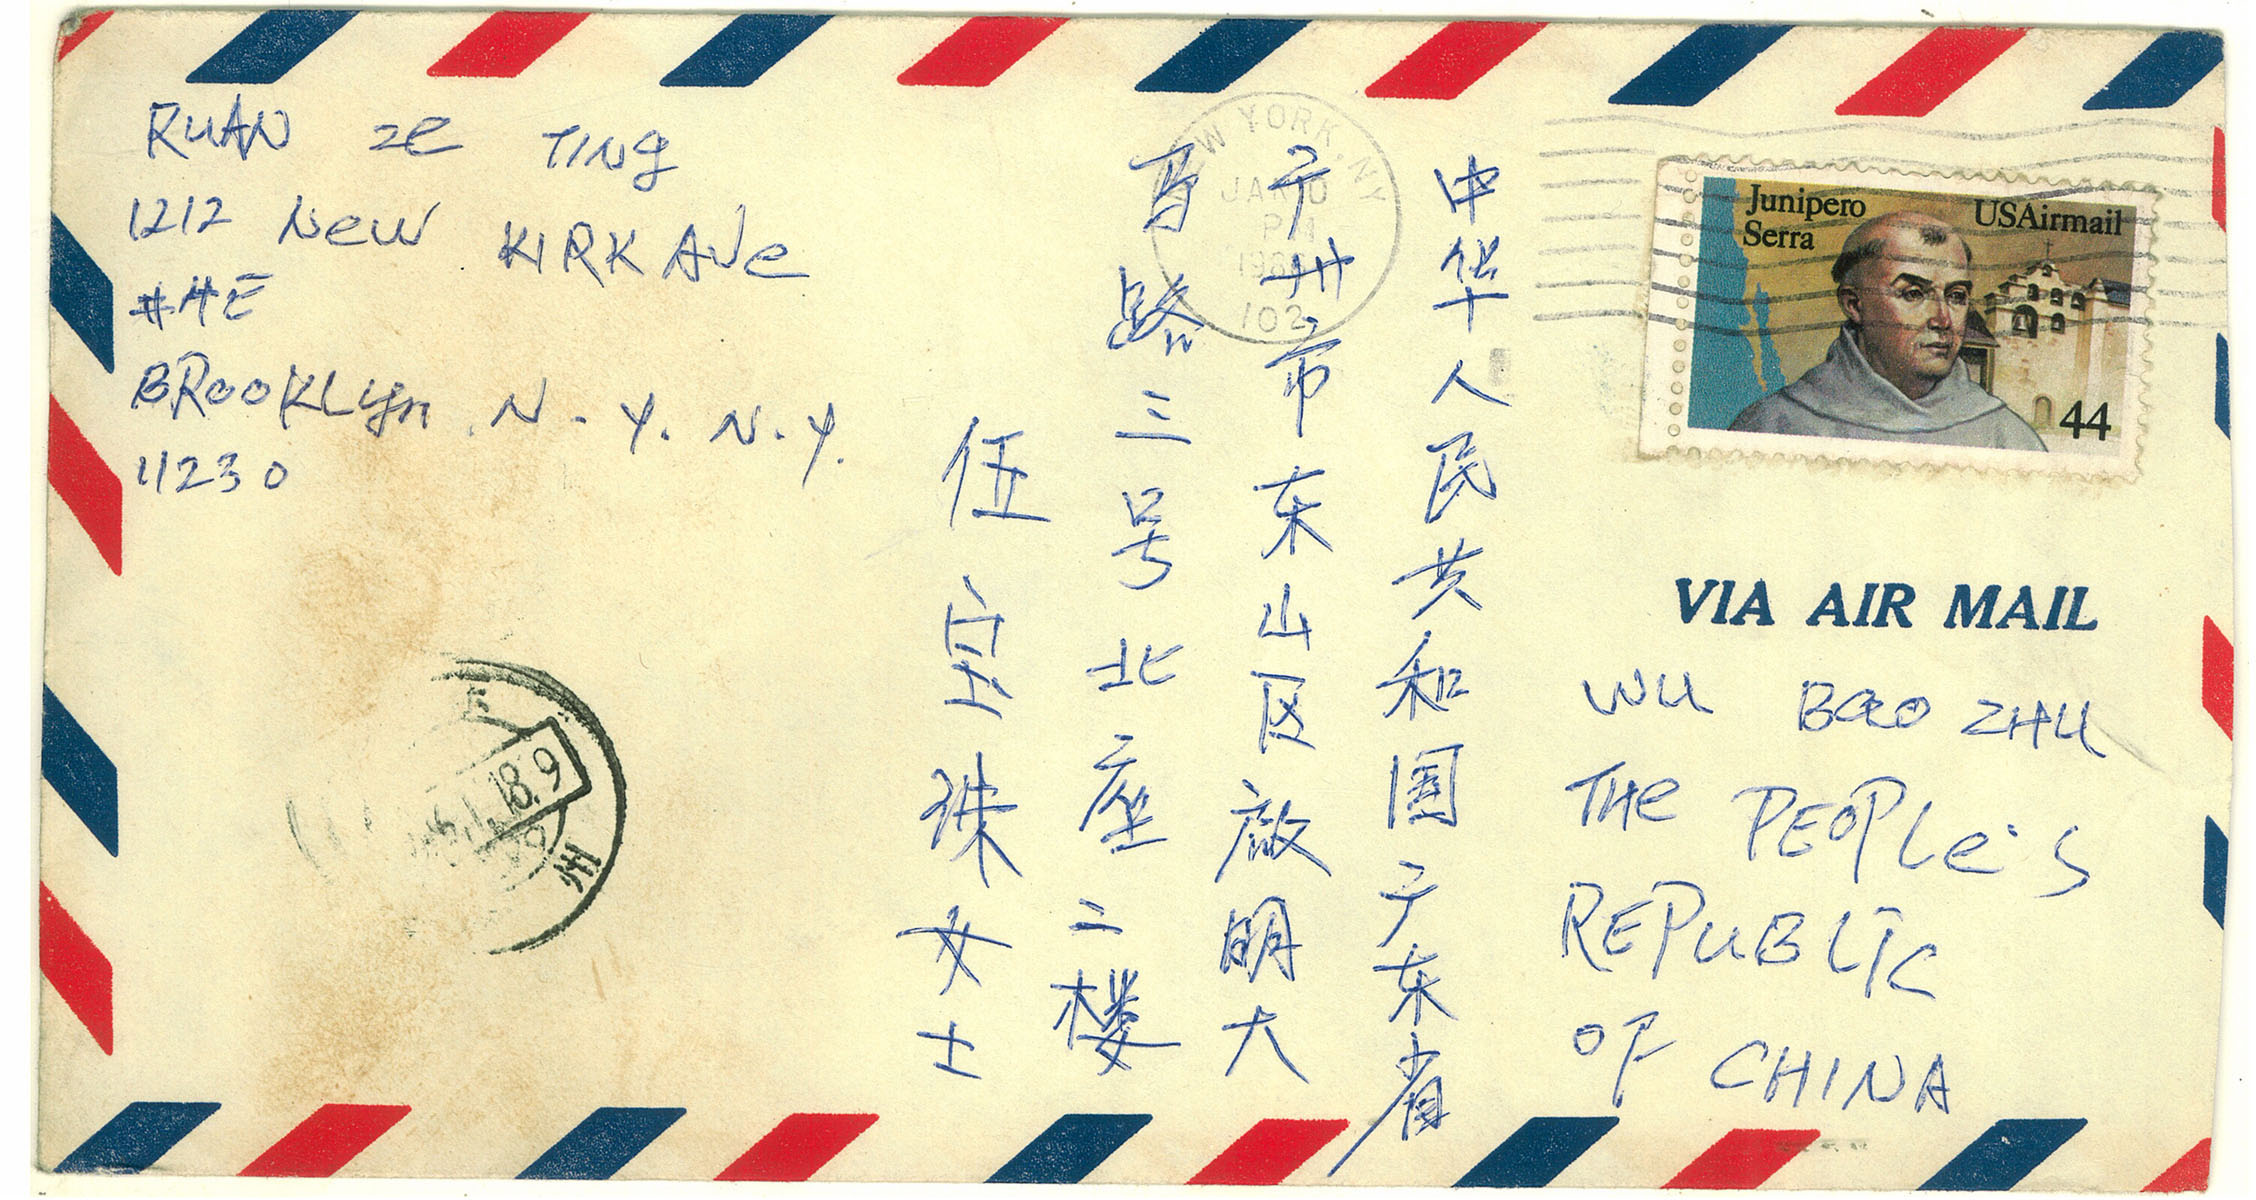 RUAN ZE TING
1212 NEW KIRK AVE
#4E
BROOKLyn. N.Y. N.Y.
11230
NEW YORK, NY
PM
102
Junipero
Serra
USAirmail
44
VIA AIR MAIL
WU BAO ZHU
THE PEOPLE'S
REPUBLIC
OF CHINA
中华人民共和国广东省
广州市东山区啟明大
马路三号北座二楼
伍宝珠女士
18.9
州